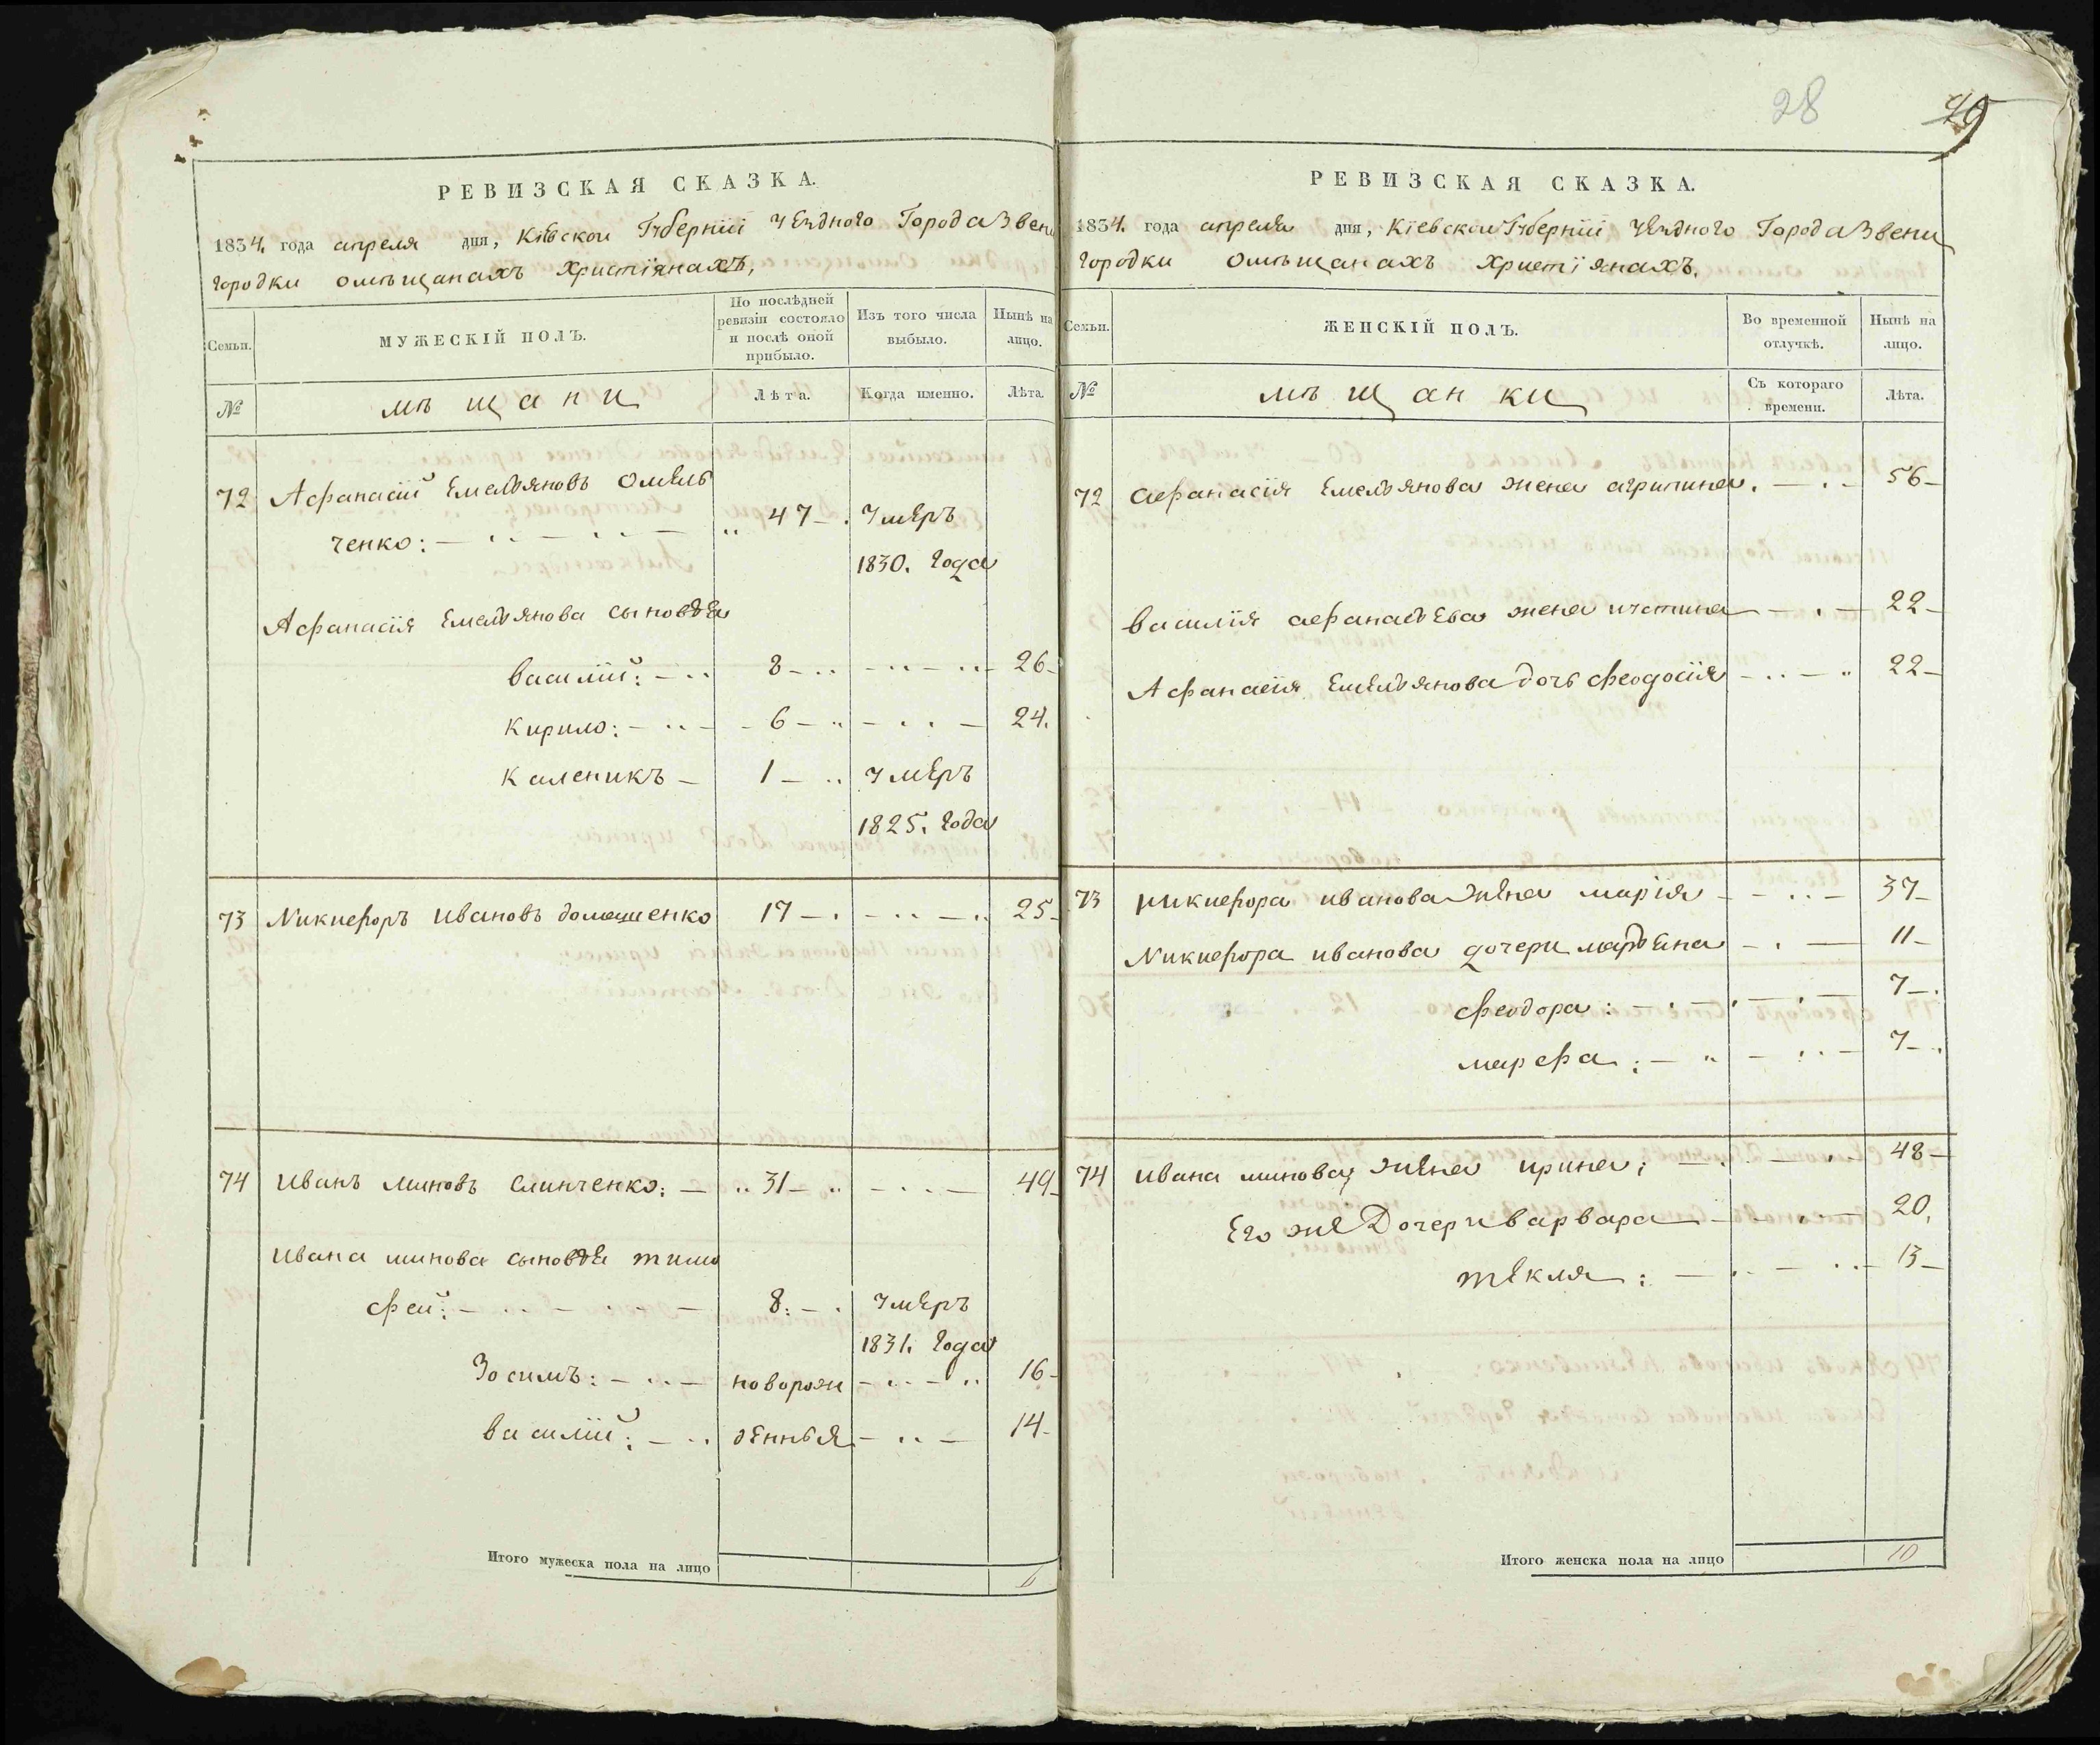 28
РЕВИЗСКАЯ СКАЗКА.
1834. года апреля дня, Кіевской Губерніи Уезднаго Города Звени
городки омѣщанахъ Христіянахъ,
Семьи.
МУЖЕСКІЙ ПОЛЪ.
По послѣдней ревизіи состояло и послѣ оной прибыло.
Изъ того числа выбыло.
Нынѣ на лицо.
№
мѣщани
Лѣта.
Когда именно.
Лѣта.
72 Афанасій Емельяновъ Омель
ченко: 47 Умеръ
1830. года
Афанасія Емельянова сыновья
василій: 8 26
Кирило: 6 24.
Каленикъ 1 умеръ
1825. года
73 Никифоръ Ивановъ домашенко 17 25
74 Иванъ Миновъ Слинченко: 31 49
Ивана минова сыновья тимо
фей: 8: умеръ
1831. года
Зосимъ: новорож 16
василій: денныя 14
Итого мужеска пола на лицо 6
РЕВИЗСКАЯ СКАЗКА.
1834. года апреля дня, Кіевской Губерніи Уезднаго Города Звени
городки омѣщанахъ Христіянахъ.
Семьи.
ЖЕНСКІЙ ПОЛЪ.
Во временной отлучкѣ.
Нынѣ на лицо.
№
мѣщанки
Съ котораго времени.
Лѣта.
72 Афанасія Емельянова жена агрипина. 56
василія афанасьева жена иустина 22
Афанасія Емельянова дочь феодосія 22
73 никифора иванова жена марія 37
Никифора иванова дочери марьяна 11
феодора: 7
марфа: 7
74 Ивана минова жена ирина: 48
Его же Дочери варвара 20.
текля: 13
Итого женска пола на лицо 10